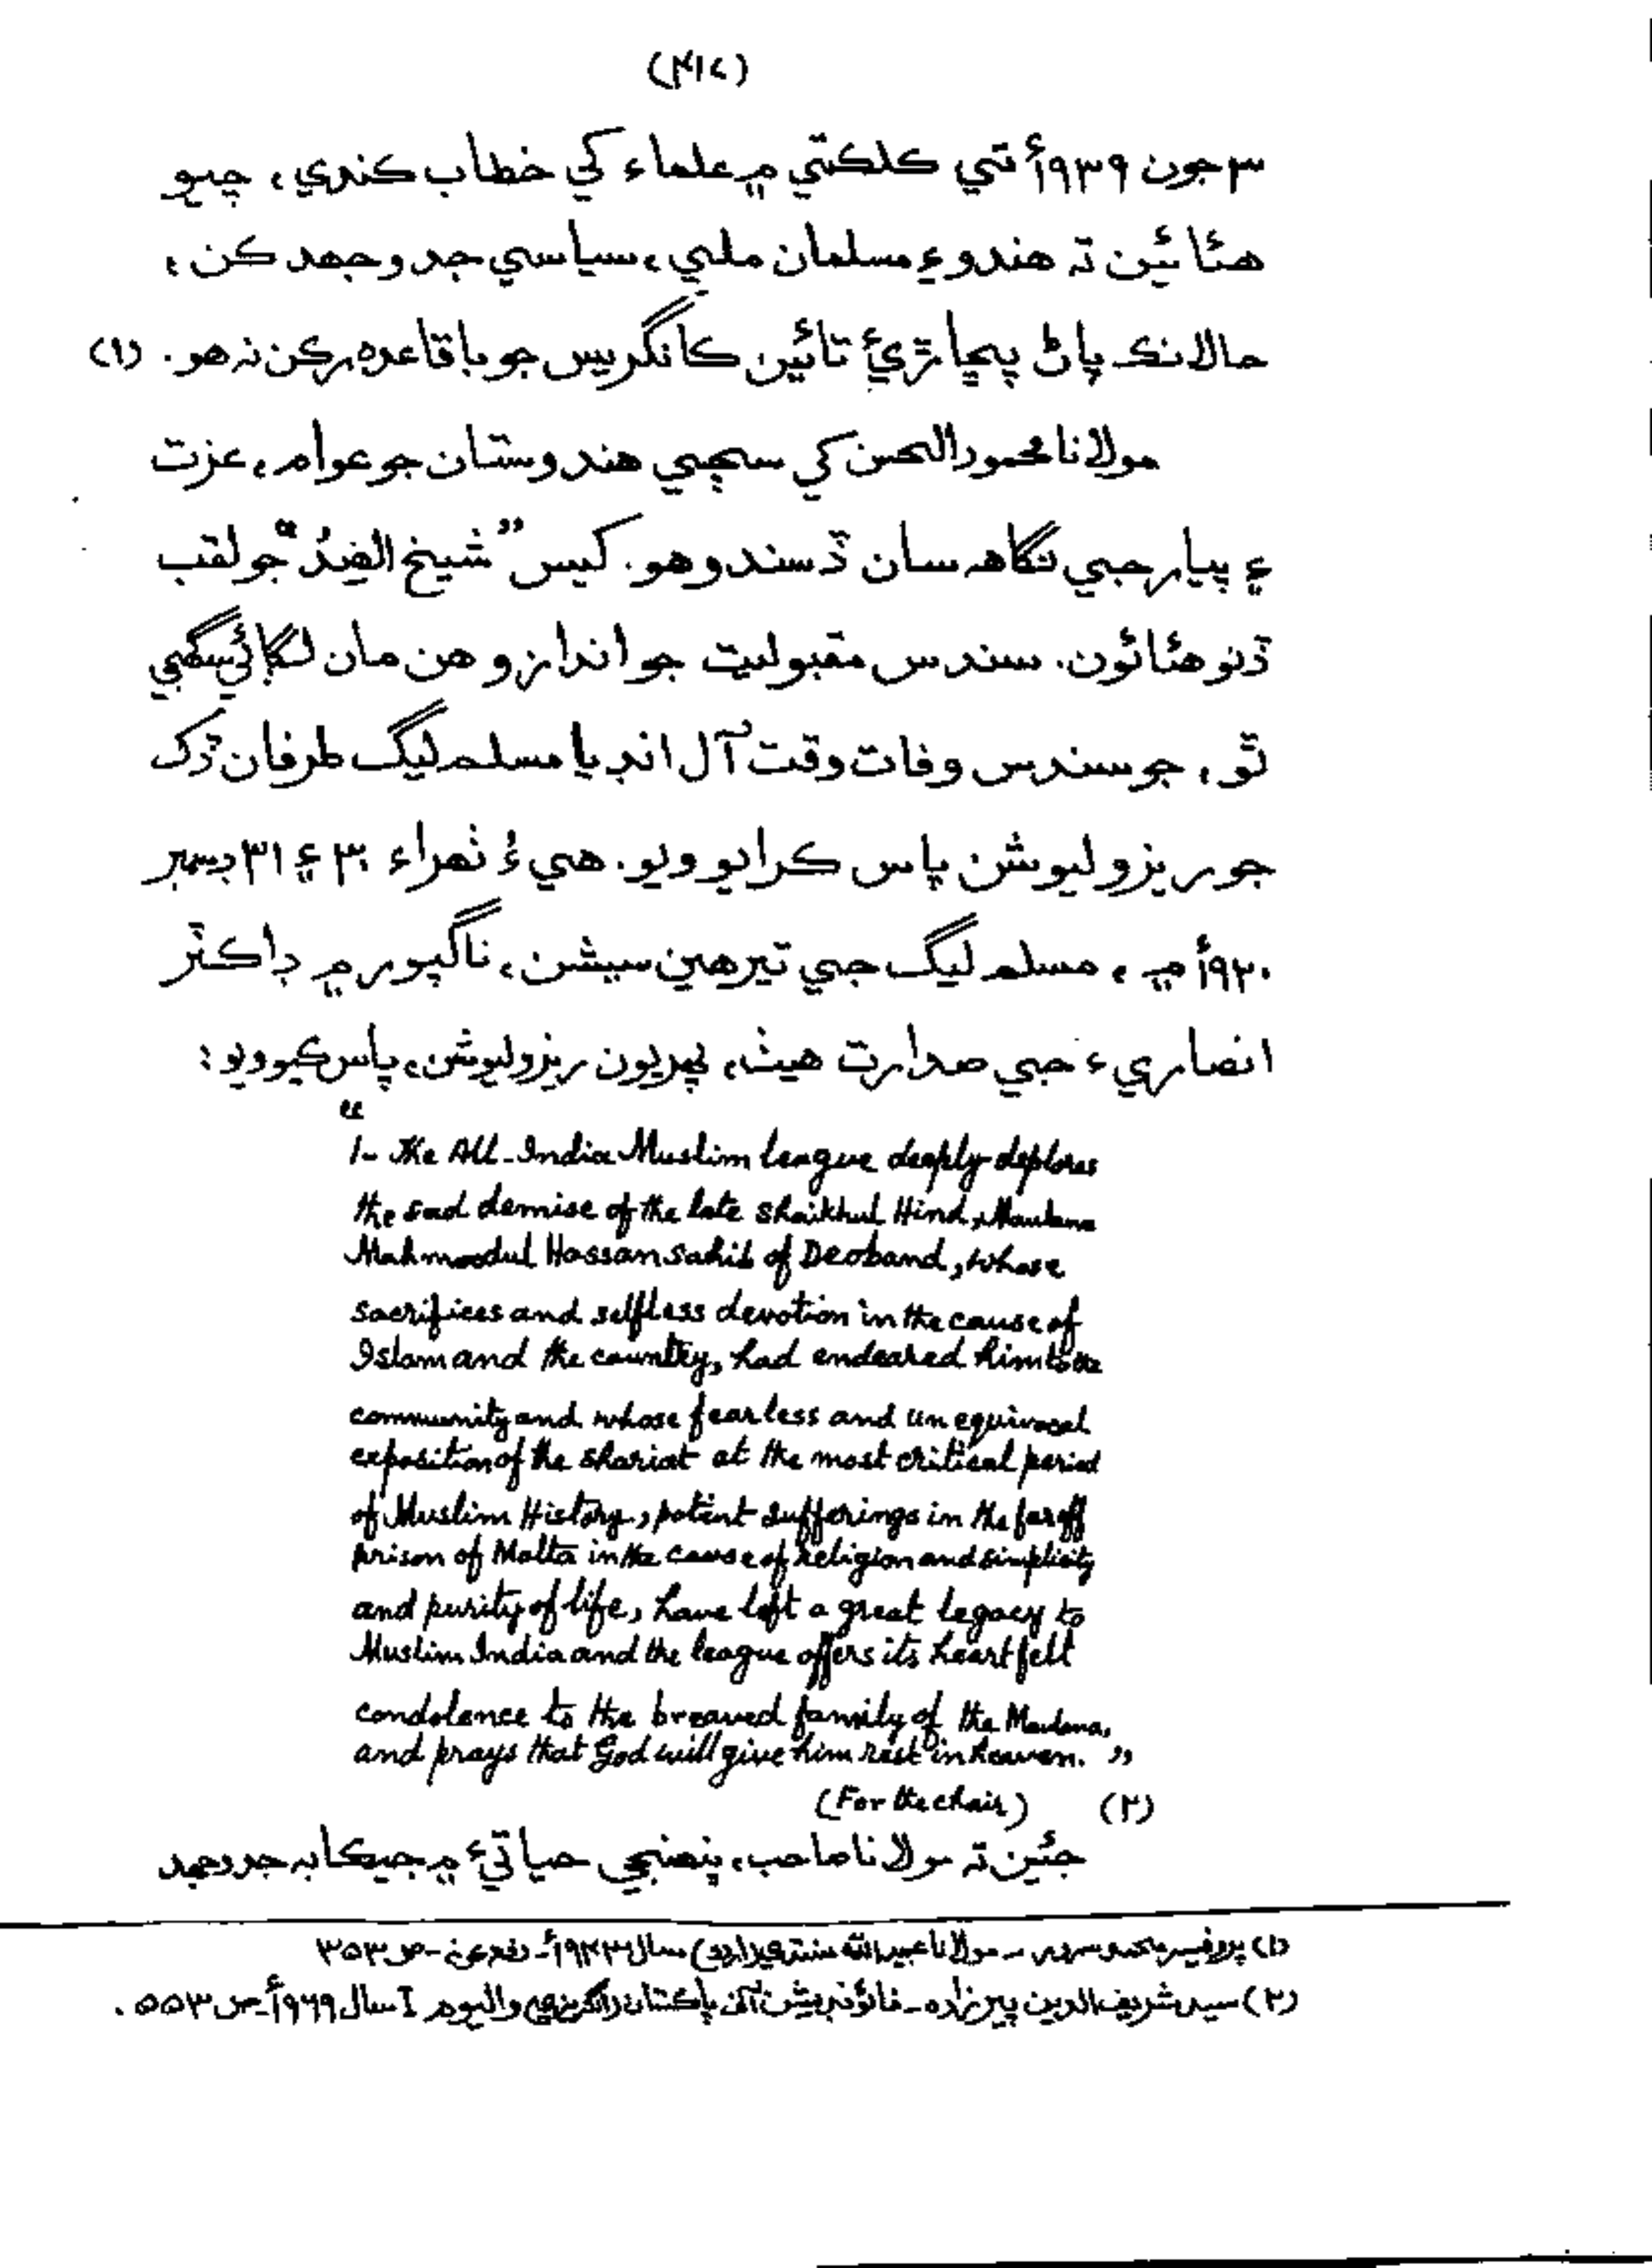 (۴۱۷)
۳ جون ۱۹۳۹ۡ تي ڪلڪتي ۾ علماء کي خطاب ڪندي، چيو
هئائين تہ هندو ۽ مسلمان ملي، سياسي جدوجهد ڪن،
حالانڪ پاڻ پڇاڙيءَ تائين ڪانگريس جو باقاعدہ رڪن نہ هو. (۱)
مولانا محمود الحسن کي سڄي هندوستان جو عوام، عزت
۽ پيار جي نگاهہ سان ڏسندو هو. کيس ”شيخ الهندؒ“ جو لقب
ڏنو هئائون. سندس مقبوليت جو اندازو هن مان لڳائي سگهجي
ٿو، جو سندس وفات وقت آل انڊيا مسلم ليگ طرفان ڏک
جو ريزوليوشن پاس ڪرايو ويو. هيءُ ٺهراء ۳۰ ۽ ۳۱ ڊسمبر
۱۹۲۰ۡ ۾، مسلم ليگ جي تيرهين سيشن، ناگپور ۾ ڊاڪٽر
انصاريء جي صدارت هيٺ، پهريون ريزوليوشن، پاس ڪيو ويو:
“
1- The All-India Muslim league deeply deplores
the sad demise of the late Shaikhul Hind, Maulana
Mahmoodul Hassan Sahib of Deoband, whose
sacrifices and selfless devotion in the cause of
Islam and the country, had endeared him to the
community and whose fearless and unequivocal
exposition of the shariat at the most critical period
of Muslim History, patient sufferings in the far off
prison of Malta in the cause of religion and simplicity
and purity of life, have left a great legacy to
Muslim India and the league offers its heart felt
condolence to the breaved family of the Maulana,
and prays that God will give him rest in heaven. ”
(For the chair) (۲)
جئين تہ مولانا صاحب، پنهنجي حياتيءَ ۾ جيڪا بہ جدوجهد
(۱) پروفيسر محمد سرور - مولانا عبيدالله سنڌي (اردو) سال ۱۹۴۳ۡ - - ص ۳۵۳
(۲) سيد شريف الدين پيرزاده - فائونڊيشن آف پاڪستان (انگريزي) واليوم I سال ۱۹۶۹ۡ - ص ۵۵۳.